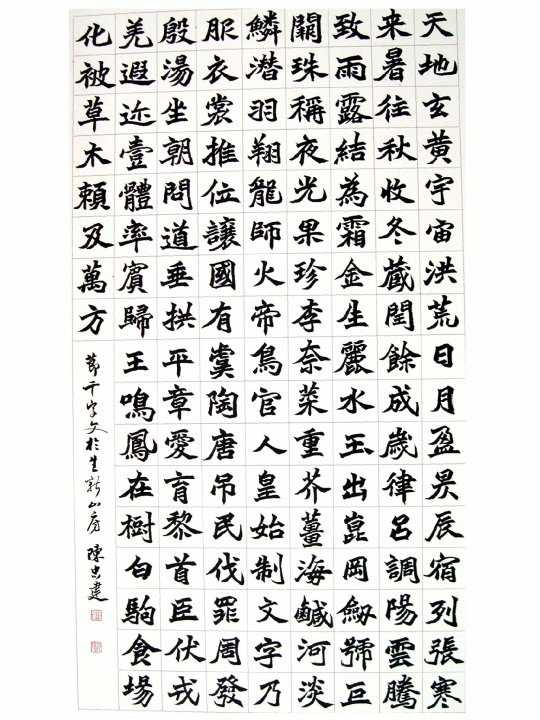 天地玄黄宇宙洪荒日月盈昃辰宿列張寒
来暑往秋收冬藏閏餘成歲律吕調陽雲騰
致雨露結為霜金生麗水玉出崑岡劒號巨
闕珠稱夜光果珍李奈菜重芥薑海鹹河淡
鱗潜羽翔龍師火帝鳥官人皇始制文字乃
服衣裳推位讓國有虞陶唐吊民伐罪周發
殷湯坐朝問道垂拱平章愛育黎首臣伏戎
羌遐迩壹體率賓歸王鳴鳳在樹白駒食場
化被草木賴及萬方
節千字文於生新山房 陳忠建